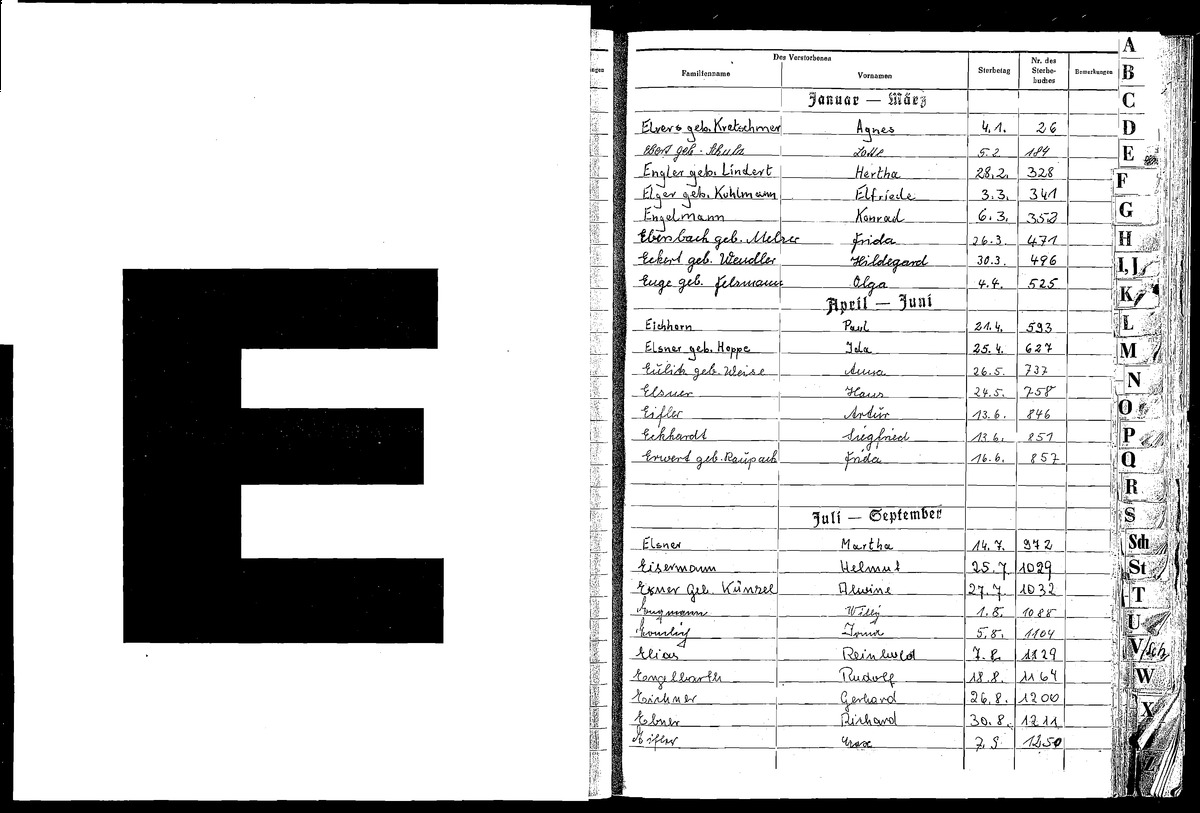 E
ngen
Des Verstorbenen
Familienname Vornamen Sterbetag Nr. des Sterbe-buches Bemerkungen
Januar — März
Elvers geb. Kretschmer Agnes 4.1. 26
geb. Lotte 5.2. 184
Engler geb. Lindert Hertha 28.2. 328
Elger geb. Kuhlmann Elfriede 3.3. 341
Engelmann Konrad 6.3. 352
Ebersbach geb. Melzer Frida 26.3. 471
Eckert geb. Wendler Hildegard 30.3. 496
Enge geb. Felsmann Olga 4.4. 525
April — Juni
Eichhorn Paul 21.4. 593
Elsner geb. Hoppe Ida 25.4. 627
Eulik geb. Weise Anna 26.5. 737
Elsner Hans 24.5. 758
Eifler Artur 13.6. 846
Eckhardt Siegfried 13.6. 851
Erwert geb. Raupach Frida 16.6. 857
Juli — September
Elsner Martha 14.7. 972
Eisermann Helmut 25.7 1029
Exner Geb. Künzel Alwine 27.7. 1032
Willy 1.8. 1088
5.8. 1104
Elias Reinhold 7.8. 1129
Engelbarth Rudolf 18.8. 1164
Gerhard 26.8. 1200
Ebner Richard 30.8. 1211
Eifler 7.9. 1250
A
B
C
D
E
F
G
H
I, J
K
L
M
N
O
P
Q
R
S
Sch
St
T
U
V/Sch
W
X
Z